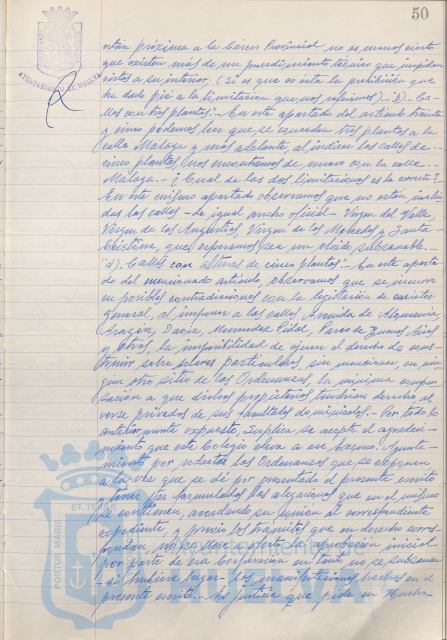 50
AYUNTAMIENTO DE HUELVA
están próxima a la Cárcel Provincial no es menos cierto
que existen más de un procedimiento técnico que impidan
vistas a su interior. (Si es que es ésta la prohibición que
ha dado pié a la limitación que nos referimos). - b). - Ca-
lles con tres plantas. - En este apartado del artículo treinta
y cinco podemos leer que se conceden tres plantas a la
calle Málaga y más adelante al indicar las calles de
cinco plantas, nos encontramos de nuevo con la calle
Málaga. - ¿Cual de las dos limitaciones es la correcta?
En este mismo apartado observamos que no están inclui-
das las calles - de igual ancho oficial - Virgen del Valle,
Virgen de las Angustias, Virgen de los Remedios y Santa
Cristina, que esperamos sea un olvido subsanable.
"d). Calles con altura de cinco plantas". - En este aparta-
do del mencionado artículo, observamos que se incurre
en posibles contradicciones con la legislación de carácter
general, al imponer a las calles Avenida de Alemania,
Aragón, Dacia, Menéndez Pidal, Paseo de Buenos Aires
y otras, la imposibilidad de ejercer el derecho de cons-
truir sobre solares particulares, sin mencionar, en nin-
gun otro sitio de las Ordenanzas, la mínima compen-
sación a que dichos propietarios tendrían derecho, al
verse privados de sus facultades de propiedad. - Por todo lo
anteriormente expuesto, Suplica se acepte el agradeci-
miento que este Colegio eleva a ese Excmo. Ayunta-
miento por redactar las Ordenanzas que se exponen,
a la vez que se dé por presentado el presente escrito
y tome por formuladas las alegaciones que en el mismo
se contienen, acordando su unión al correspondiente
expediente, y previo los trámites que en derecho corres-
pondan, no se lleve a efecto la aprobación inicial
por parte de esa Corporación en tanto no se subsanen
- si hubiere lugar - las manifestaciones hechas en el
presente escrito. - Es justicia que pide en Huelva
PORTUS MARIS ET TERRAE